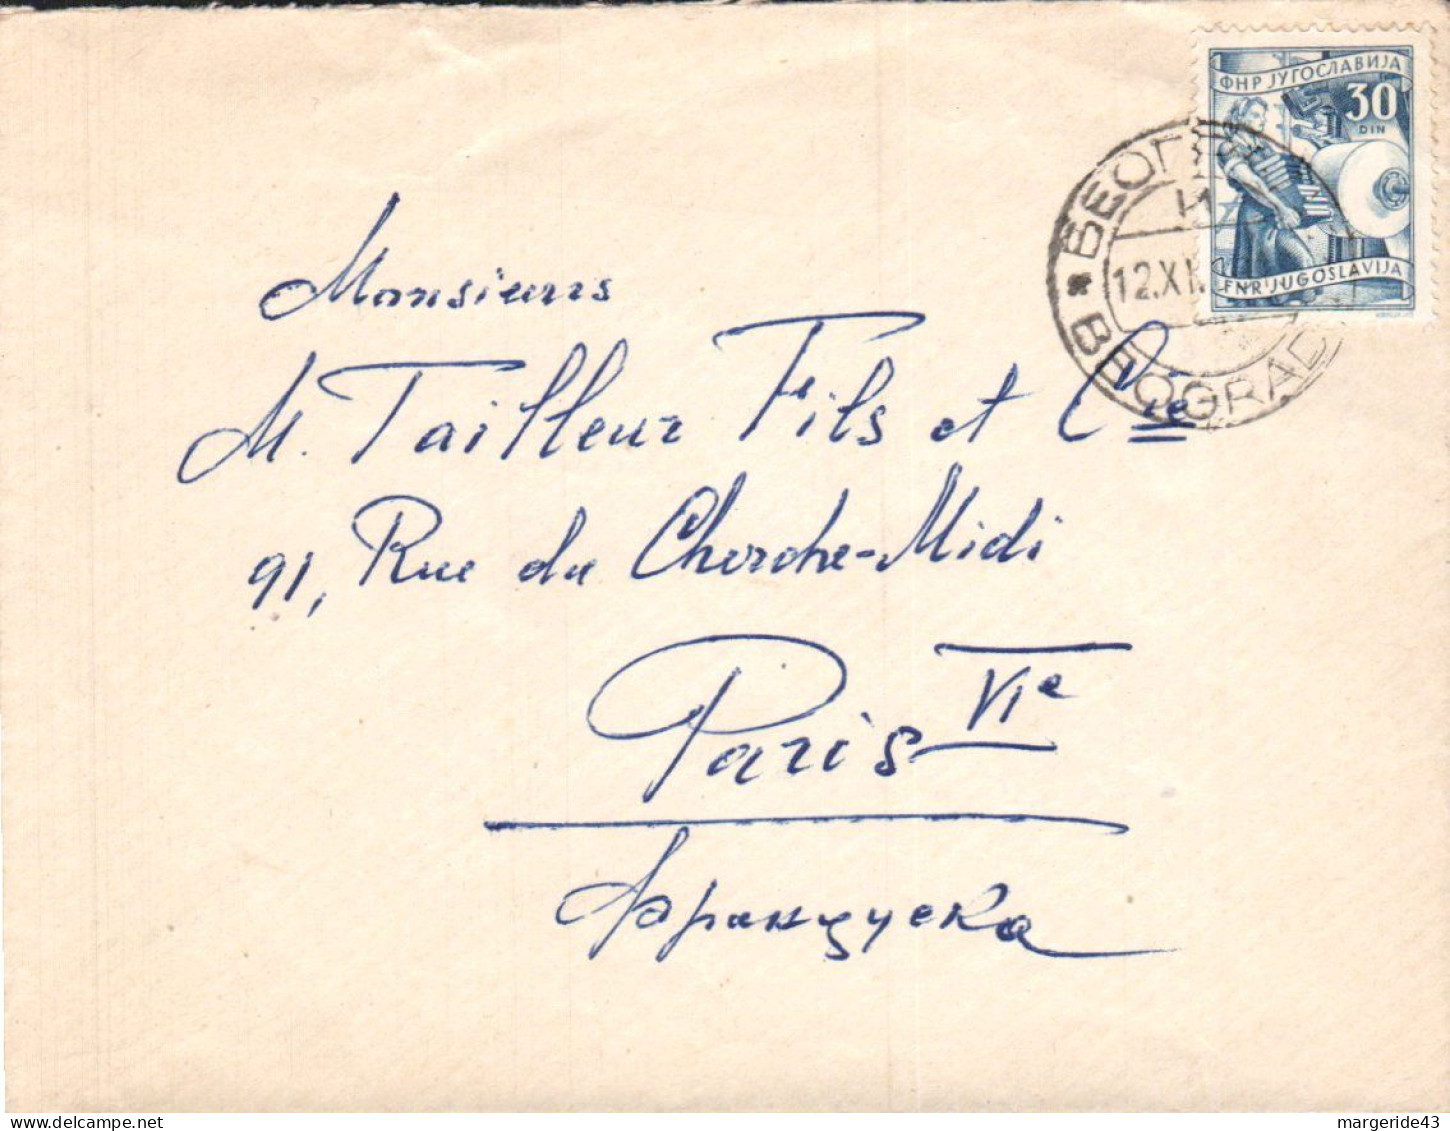 ФНР ЈУГОСЛАВИЈА
30
DIN
FNR JUGOSLAVIJA
12.XI
BEOGRAD
Monsieurs
M. Tailleur Fils et Cie
91, Rue du Cherche-Midi
Paris VIe
Француска
delcampe.net
margeride43